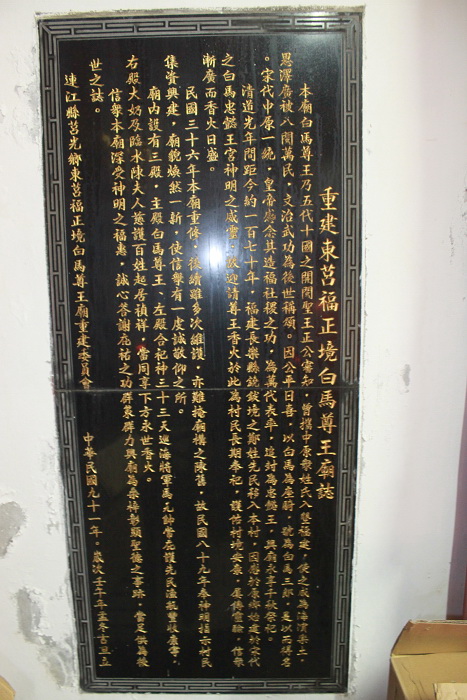 重建東莒福正境白馬尊王廟誌
本廟白馬尊王乃五代十國之開閩聖王王公審知，曾攜中原眾姓氏入墾福建，使之成為海濱樂土，
恩澤廣被八閩萬民，文治武功為後世稱頌。因公平日喜以白馬為座騎，號為白馬三郎，是以而得名
。宋代中原一統，皇帝感念其造福社稷之功，為萬代表率，追封為忠懿王，興廟永享千秋祭祀。
清道光年間距今約一百七十年，福建長樂縣鏡境之鄭姓先民移入本村，因感於原鄉始建於宋代
之白馬忠懿王宮神明之威靈，歡迎請尊王香火於此為村民長期奉祀，護佑村境安泰，屢傳靈驗，信眾
漸廣而香火日盛。
民國三十六年本廟重修，後續雖多次維護，亦難掩廟構之陳舊，故民國八十九年奉神明指示村民
集資興建，廟貌煥然一新，使信眾有一虔誠敬仰之所。
廟內設有三殿，主殿白馬尊王、左殿合祀神三十三天巡海將軍馬元帥常在護先民漁航豐收康寧。
右殿大奶及臨水陳夫人慈護百姓起居禎祥，當同享下方永世香火。
信眾本廟深受神明之福惠，誠心答謝庇祐之功群策群力興廟為梁梓彰顯聖德之事跡，當足以為後
世之誌。
連江縣莒光鄉東莒福正境白馬尊王廟重建委員會
中華民國九十一年。歲次壬午年孟冬吉旦立